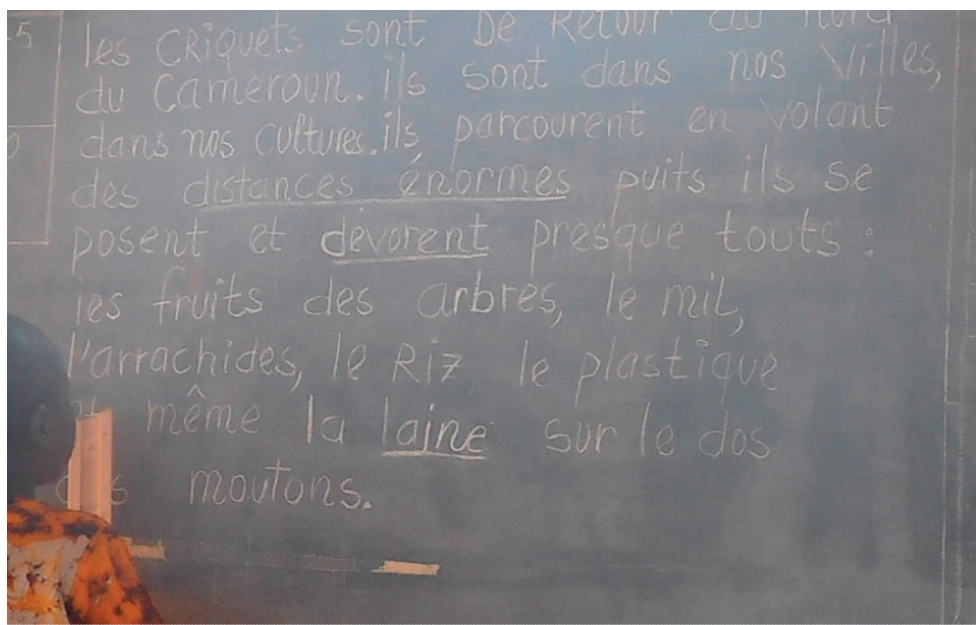 -5
les CRiquets sont De Retour au Nord
du Cameroun. ils sont dans nos Villes,
dans nos cultures. ils parcourent en volant
des distances énormes puits ils se
posent et dévorent presque touts :
les fruits des arbres, le mil,
l'arrachides, le Riz le plastique
même la laine sur le dos
moutons.